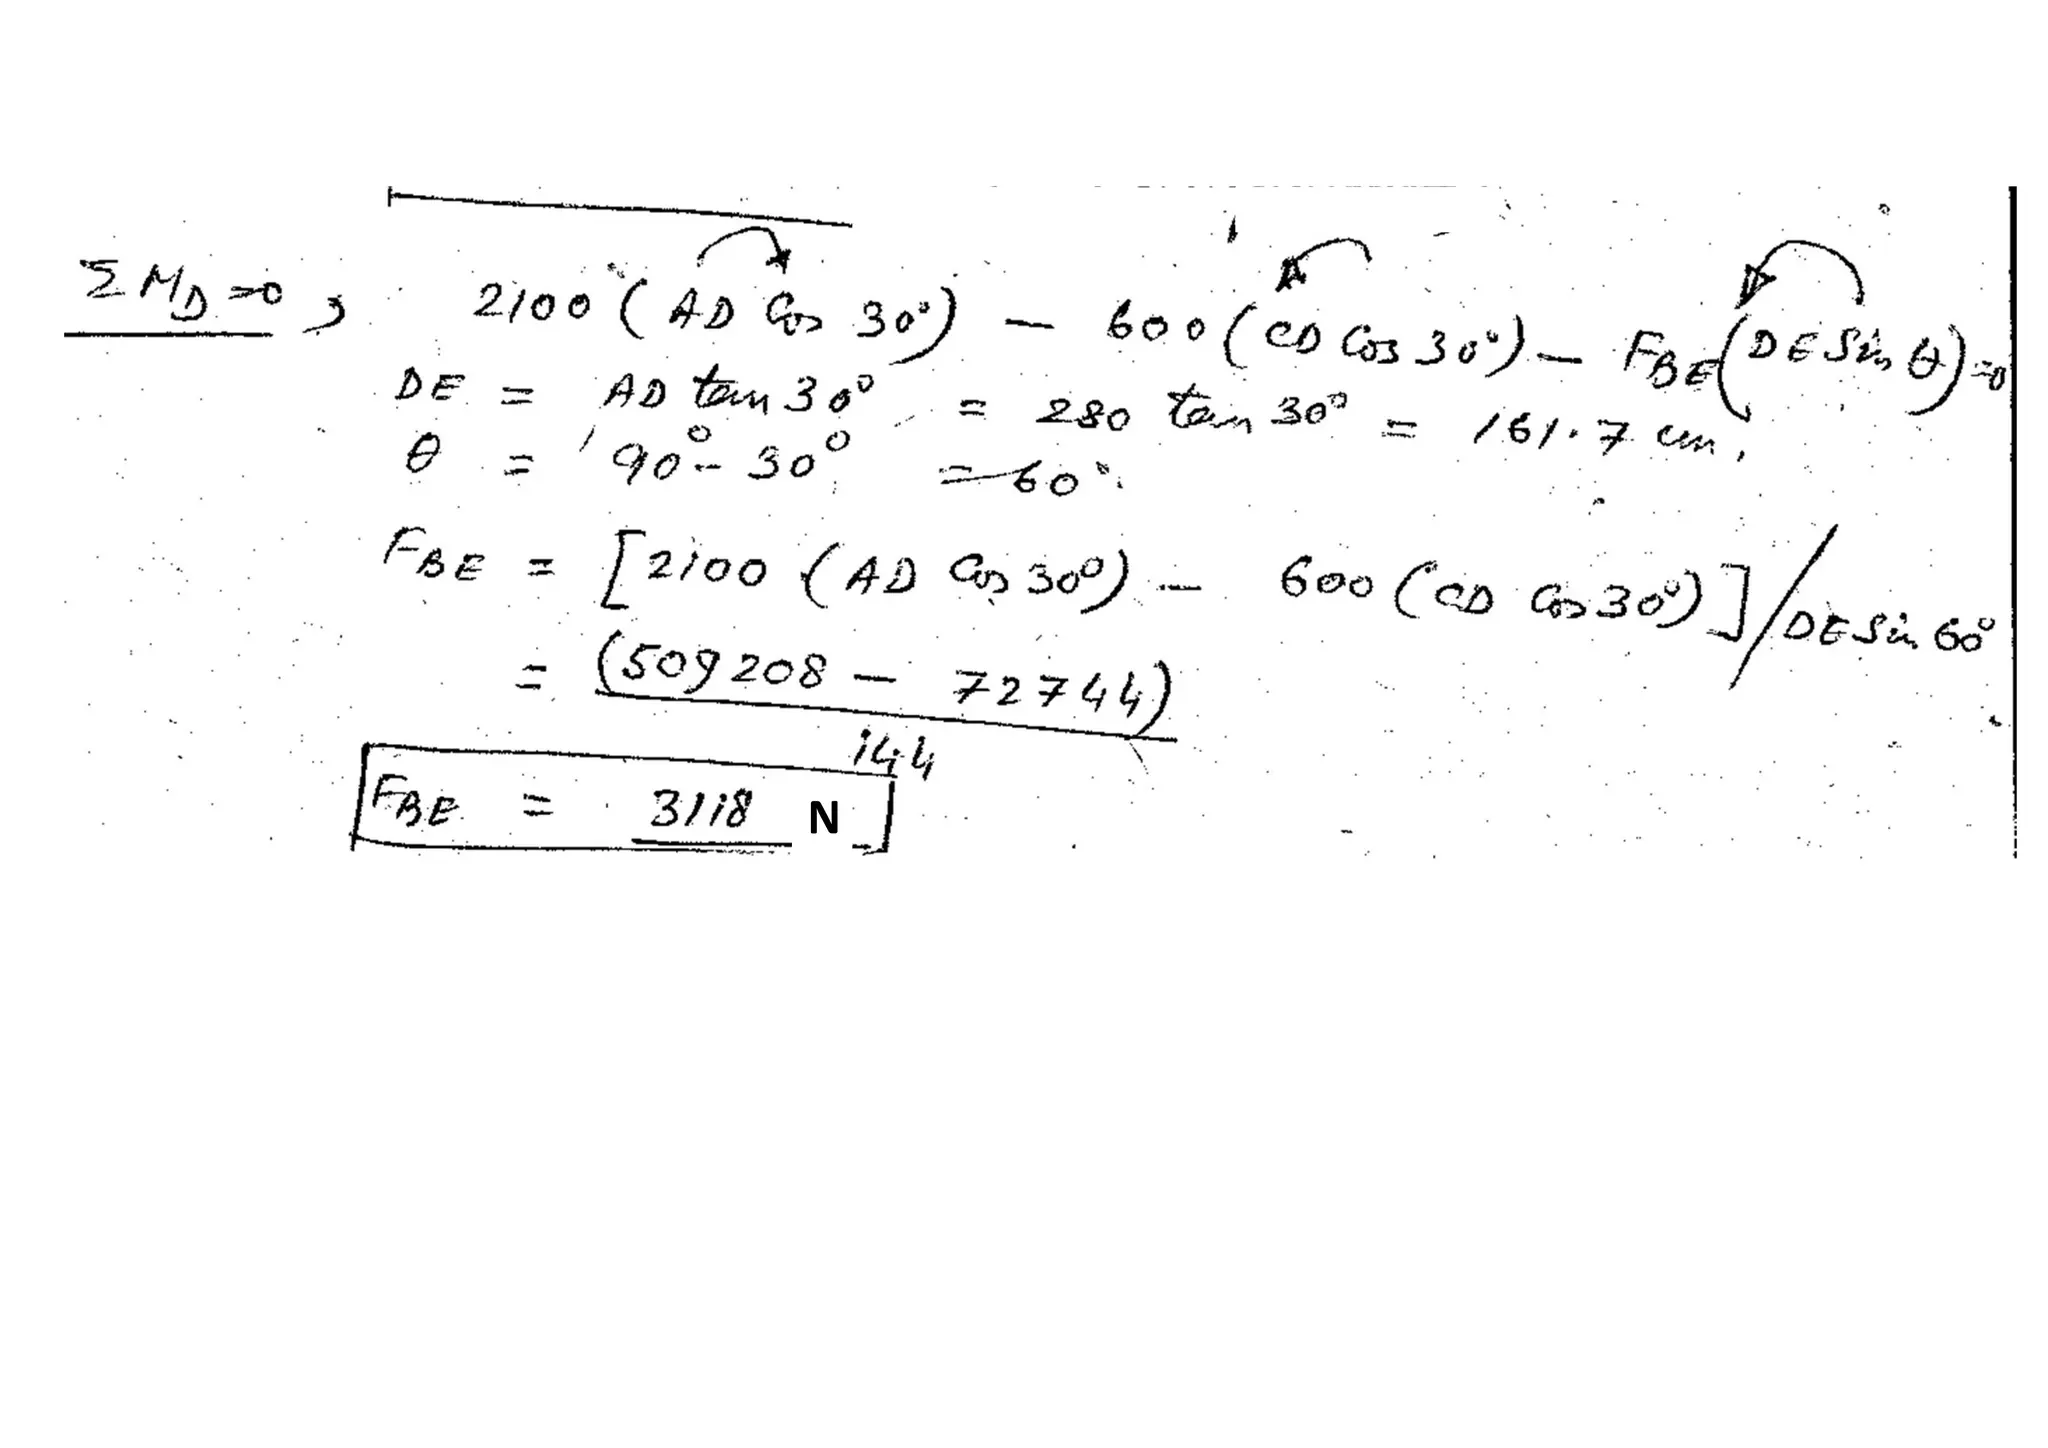 ΣM_D=0, 2100 (AD Cos 30°) - 600 (CD Cos 30°) - F_BE (DE Sin θ)=0
DE = AD tan 30° = 280 tan 30° = 161.7 cm.
θ = 90° - 30° = 60°
F_BE = [2100 (AD Cos 30°) - 600 (CD Cos 30°)] / DE Sin 60°
= (509208 - 72744)
144
F_BE = 3118 N